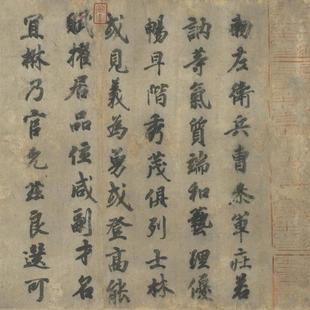 勅左衛兵曹參軍莊若
訥等氣質端和藝理優
暢早階秀茂俱列士林
或見義為勇或登高能
賦擢居品位咸副才名
宜楙乃官允茲良選可